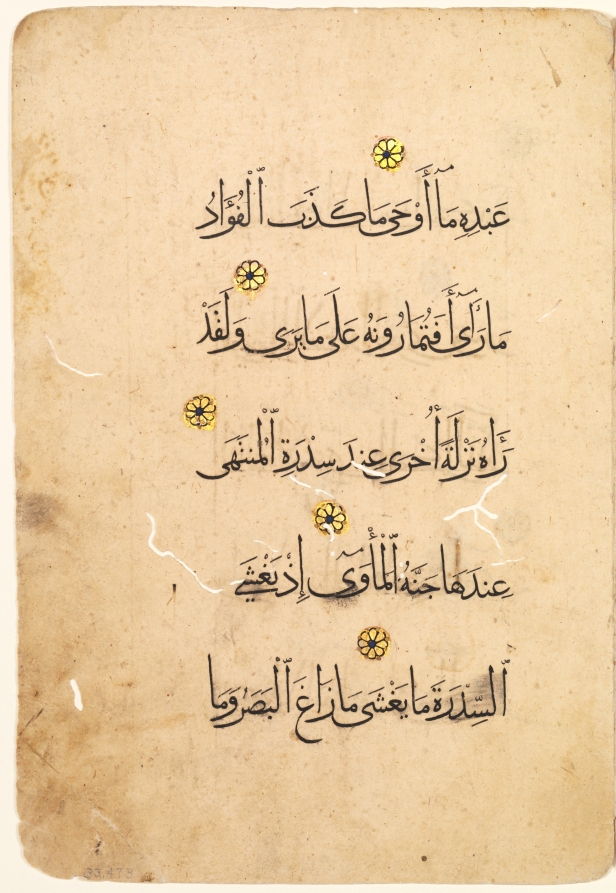 عَبْدِهِ مَآ أَوْحَى مَا كَذَبَ ٱلْفُؤَادُ
مَا رَأَىٰٓ أَفَتُمَارُونَهُ عَلَى مَا يَرَى وَلَقَدْ
رَءَاهُ نَزْلَةً أُخْرَى عِندَ سِدْرَةِ ٱلْمُنتَهَى
عِندَهَا جَنَّةُ ٱلْمَأْوَىٰٓ إِذْ يَغْشَى
ٱلسِّدْرَةَ مَا يَغْشَى مَا زَاغَ ٱلْبَصَرُ وَمَا